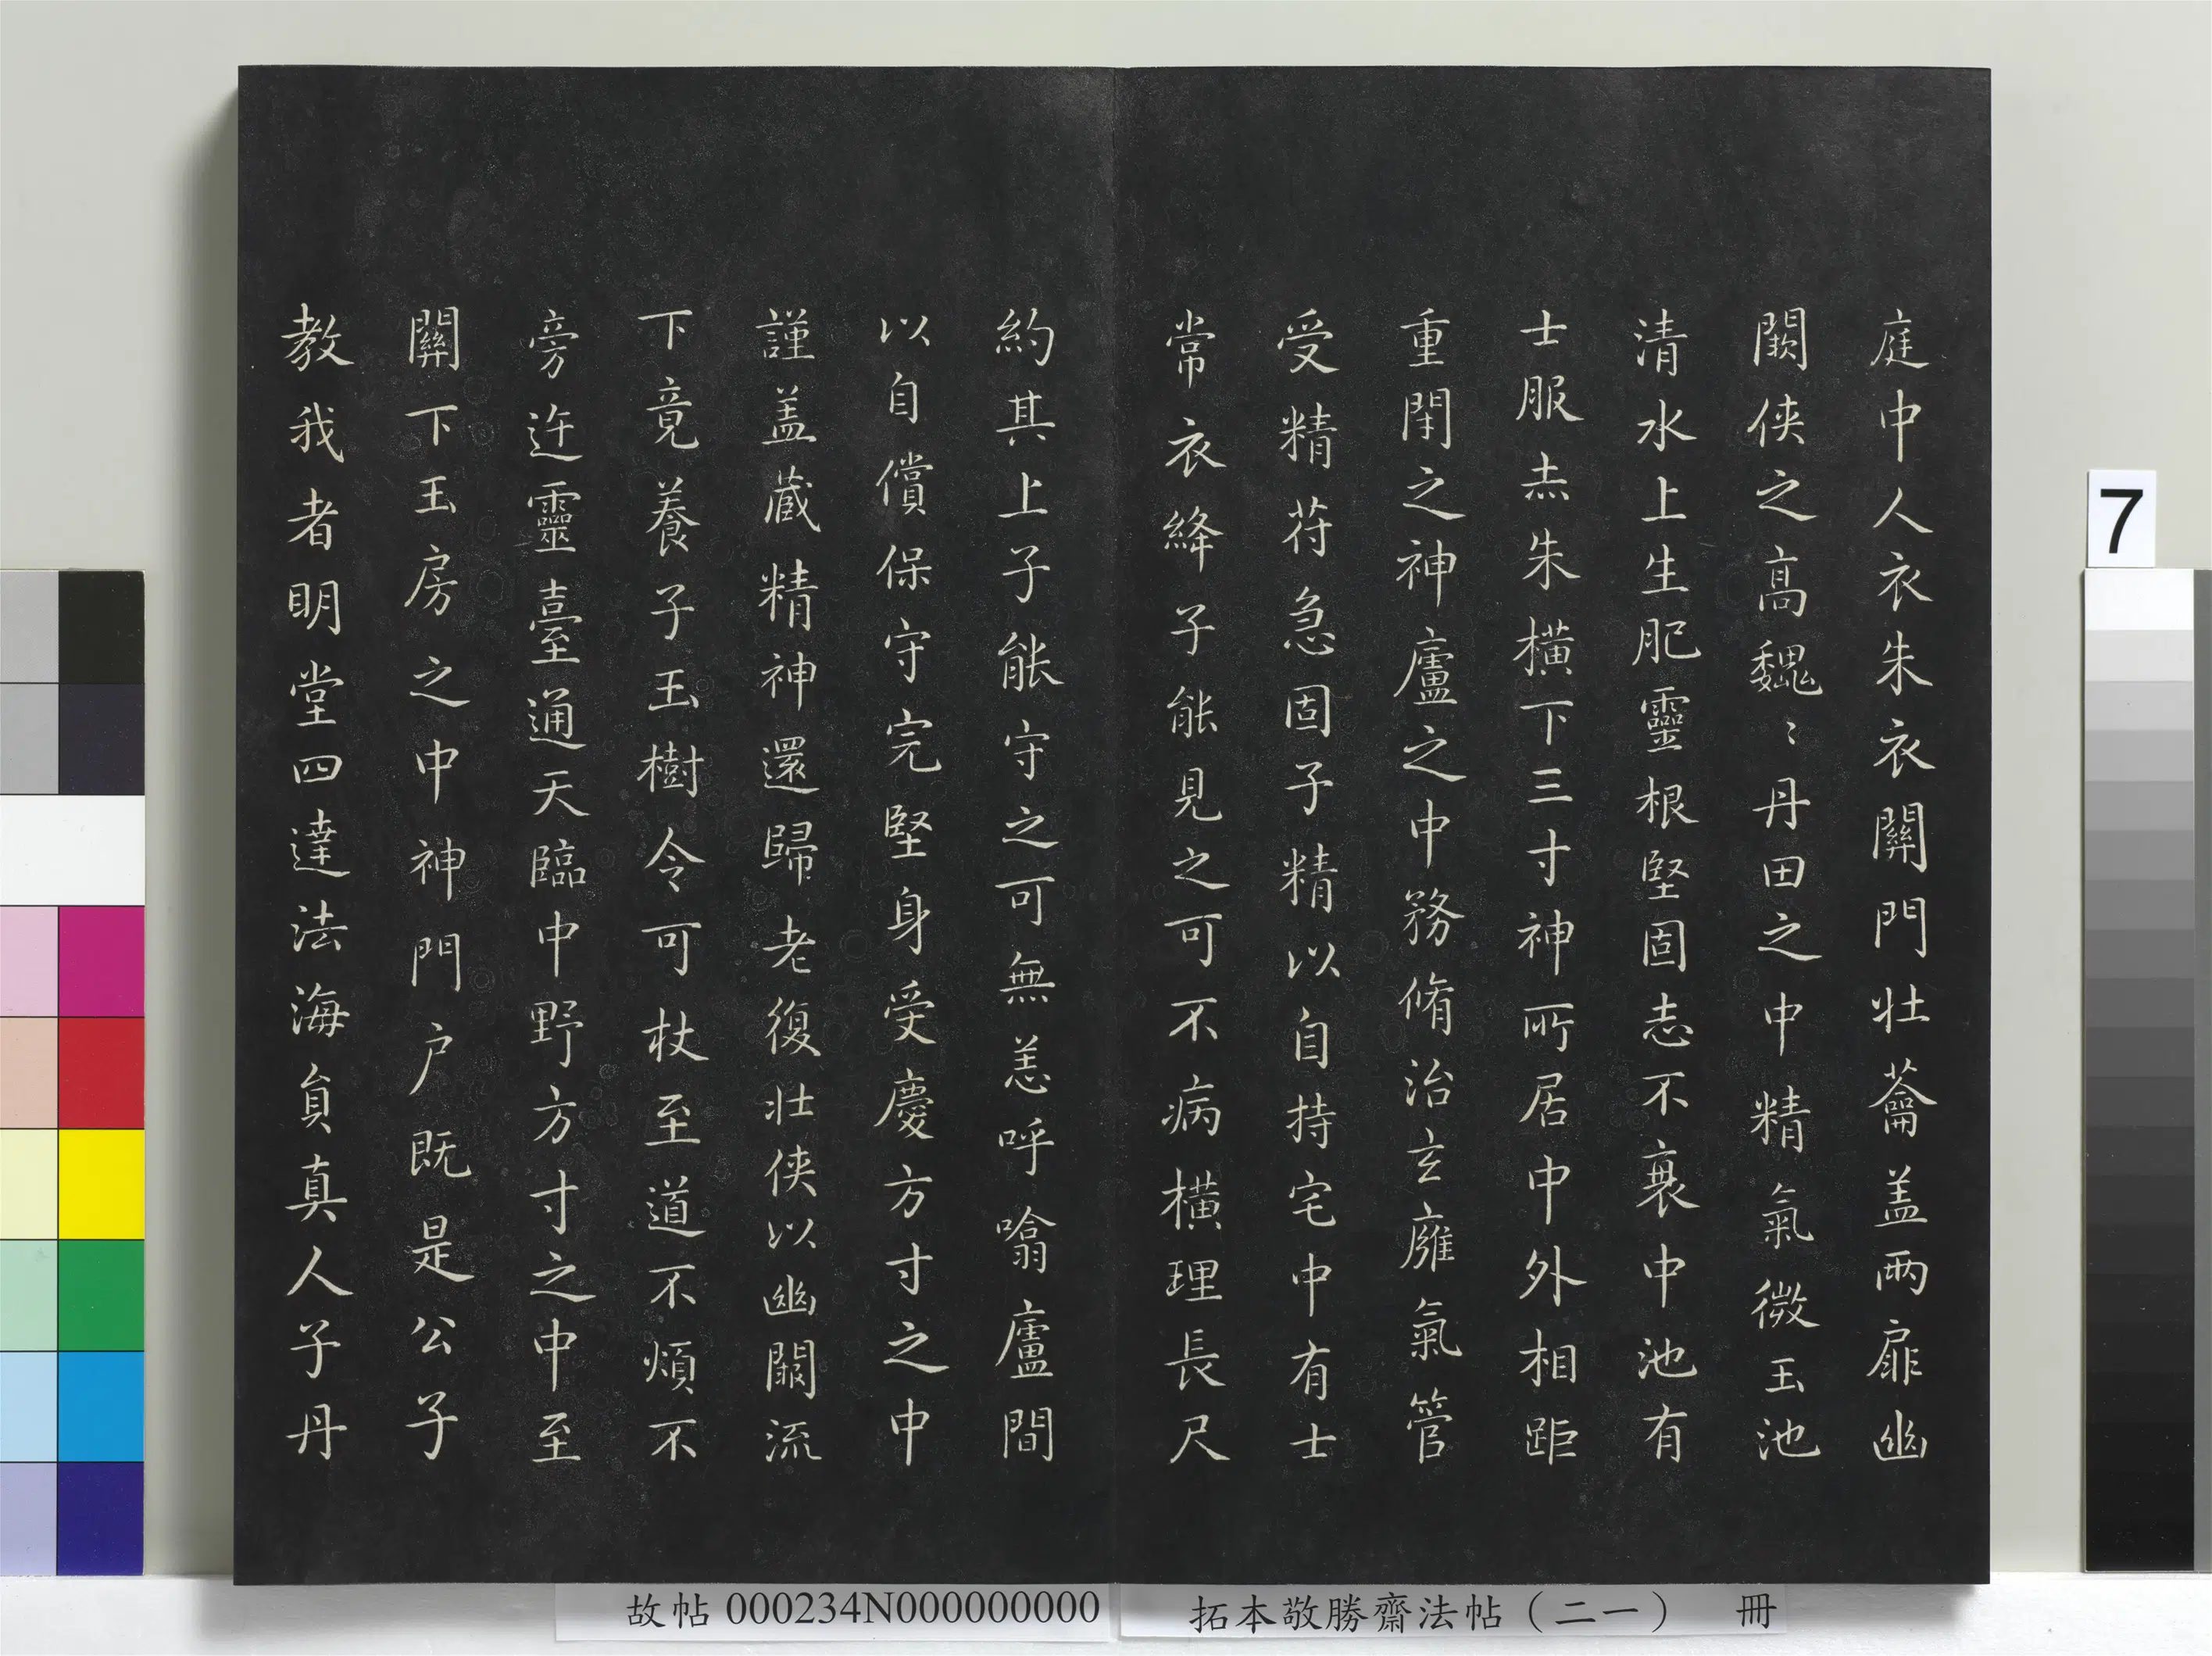 庭中人衣朱衣關門壯蘥盖兩扉幽
闕俠之高魏〻丹田之中精氣微玉池
清水上生肥靈根堅固志不衰中池有
士服赤朱橫下三寸神所居中外相距
重閇之神廬之中務脩治玄廱氣管
受精苻急固子精以自持宅中有士
常衣絳子能見之可不病橫理長尺
約其上子能守之可無恙呼噏廬間
以自償保守完堅身受慶方寸之中
謹盖藏精神還歸老復壯俠以幽闕流
下竟養子玉樹令可杖至道不煩不
旁迕靈臺通天臨中野方寸之中至
關下玉房之中神門户既是公子
教我者明堂四達法海負真人子丹
7
故帖 000234N000000000
拓本敬勝齋法帖（二一） 冊